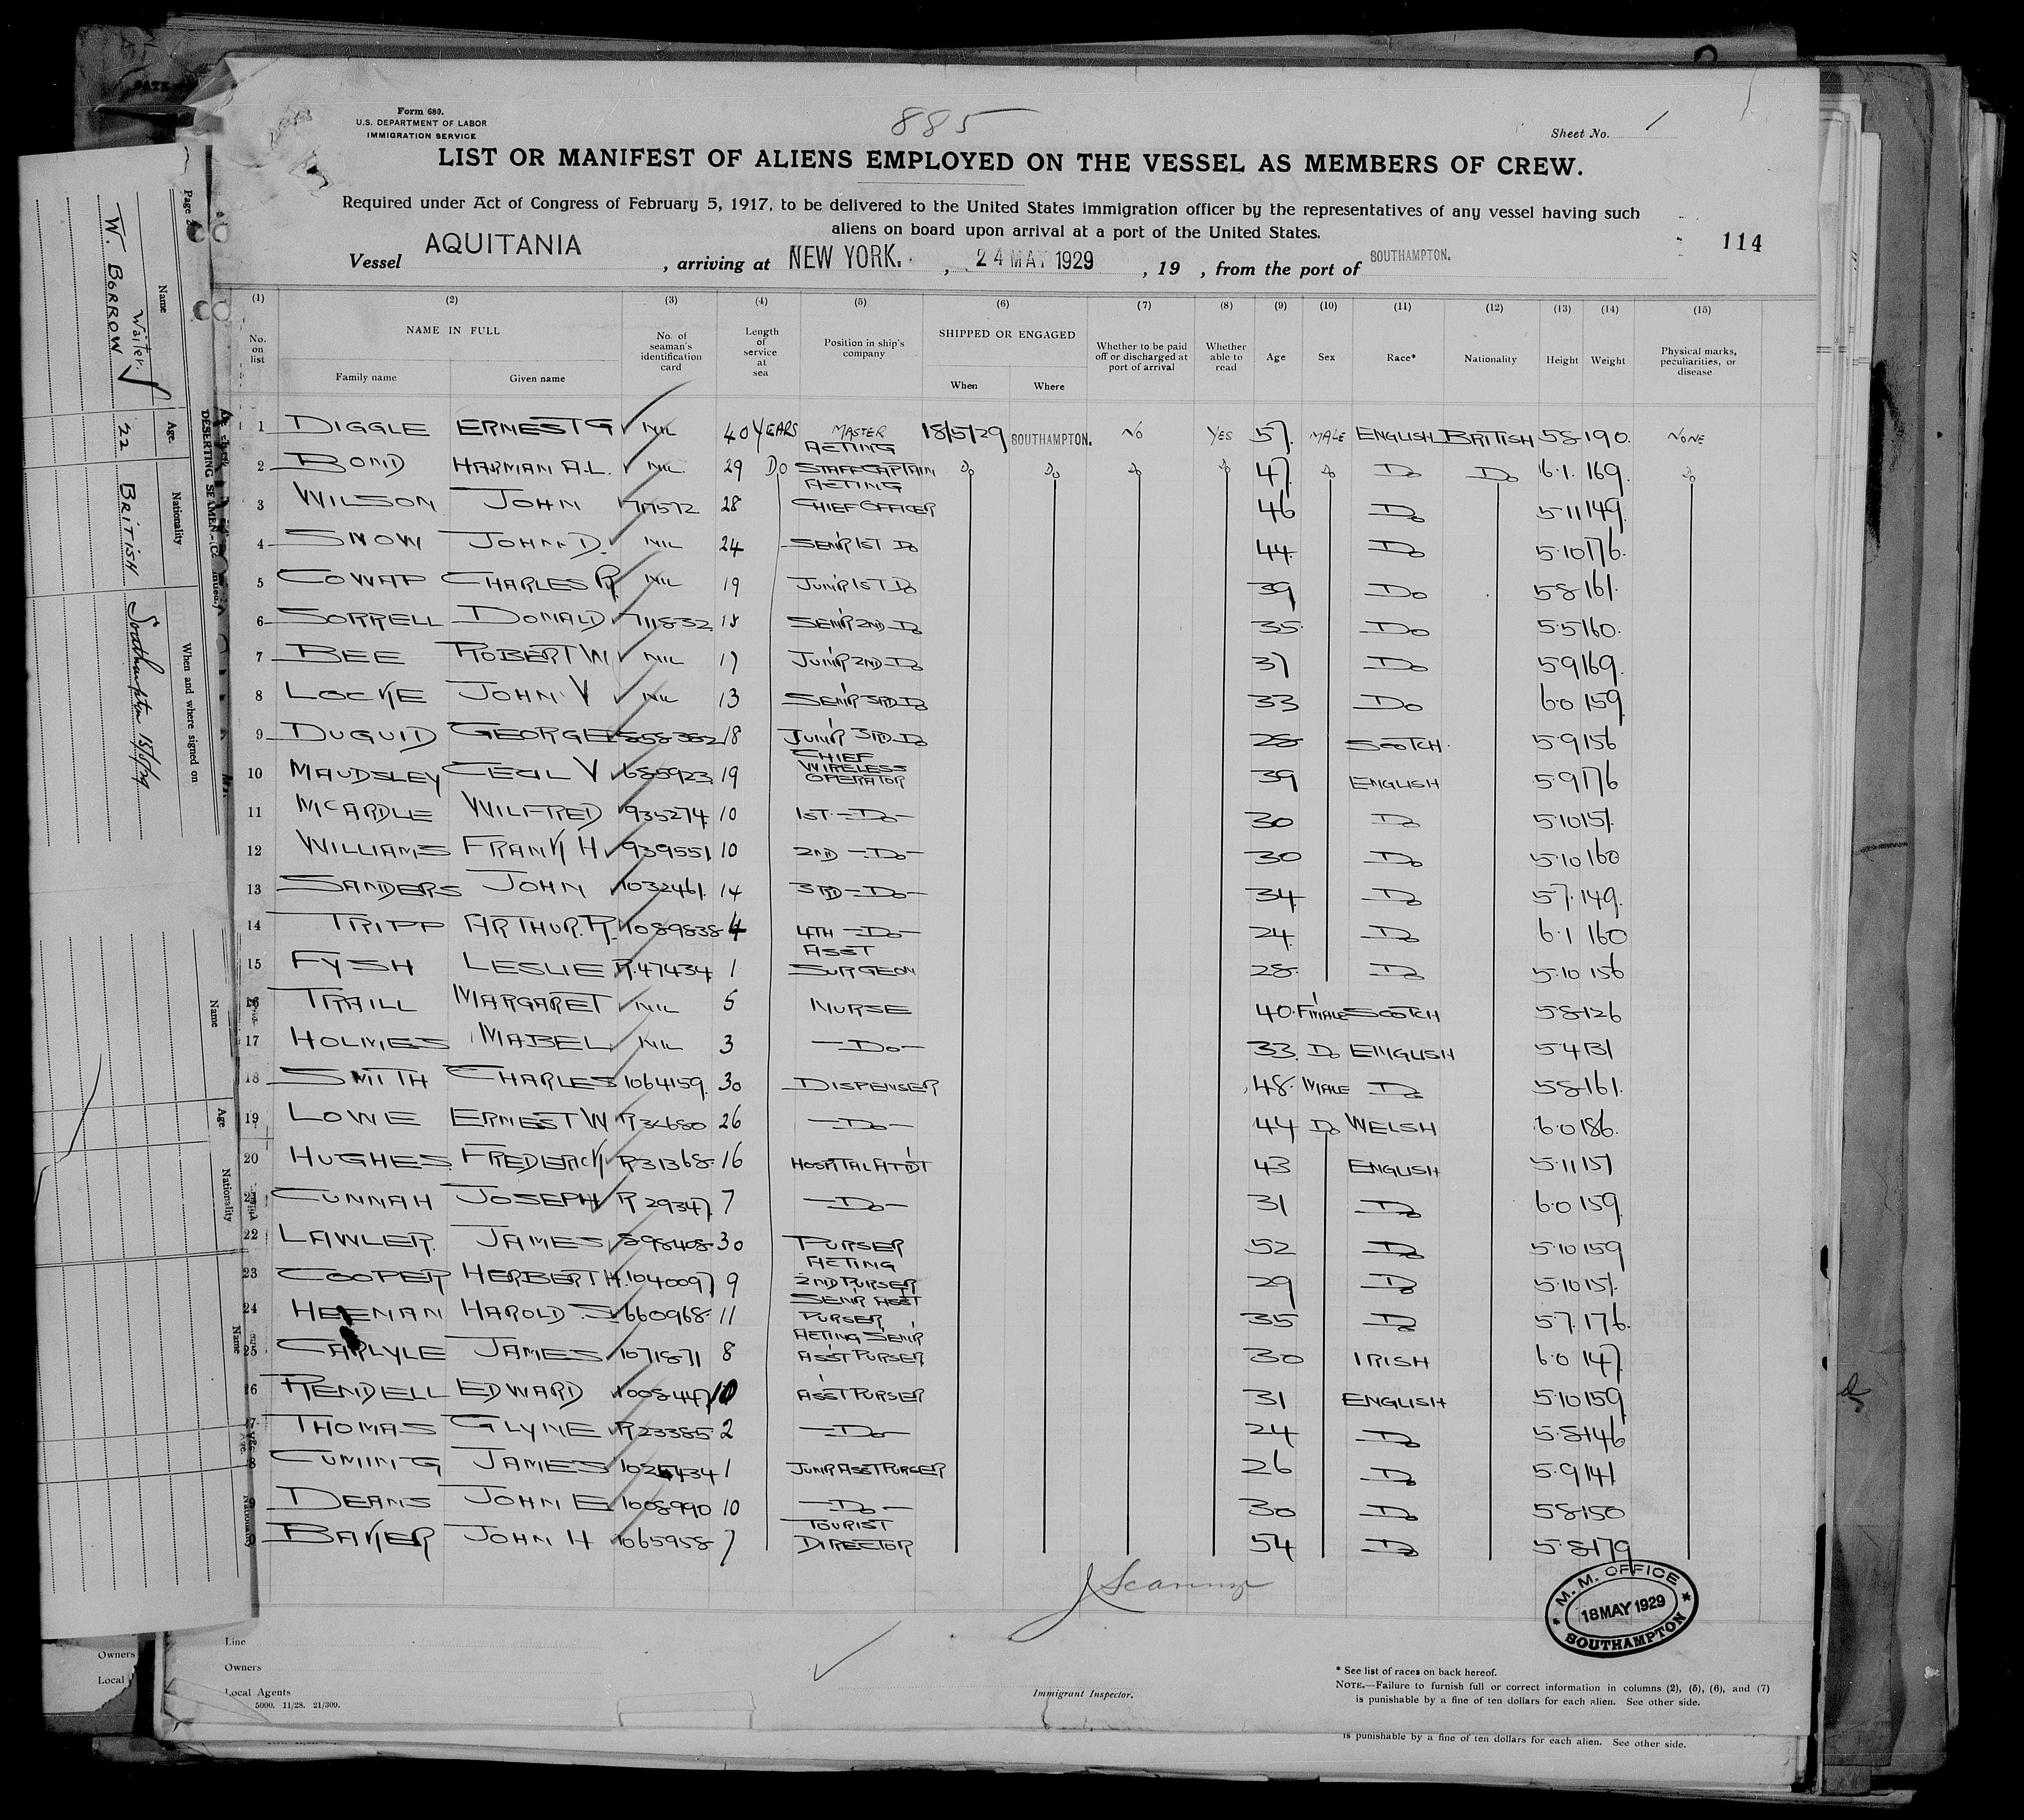 Form 680.
U.S. DEPARTMENT OF LABOR
IMMIGRATION SERVICE
885
Sheet No. 1
LIST OR MANIFEST OF ALIENS EMPLOYED ON THE VESSEL AS MEMBERS OF CREW.
Required under Act of Congress of February 5, 1917, to be delivered to the United States immigration officer by the representatives of any vessel having such
aliens on board upon arrival at a port of the United States.
114
Vessel AQUITANIA , arriving at NEW YORK. , 24 MAY 1929 , 19 , from the port of SOUTHAMPTON.
(1) (2) (3) (4) (5) (6) (7) (8) (9) (10) (11) (12) (13) (14) (15)
No. on list NAME IN FULL Family name Given name No. of seaman's identification card Length of service at sea Position in ship's company SHIPPED OR ENGAGED When Where Whether to be paid off or discharged at port of arrival Whether able to read Age Sex Race* Nationality Height Weight Physical marks, peculiarities, or disease
1 DIGGLE ERNEST G NIL 40 YEARS MASTER 18/5/29 SOUTHAMPTON. NO YES 57. MALE ENGLISH BRITISH 5·8 190. NONE
2 BOND HARMAN A.L. NIL 29 DO ACTING STAFF CAPTAIN Do Do Do Do 47. Do Do Do 6·1. 169. Do
3 WILSON JOHN 717572 28 ACTING CHIEF OFFICER 46 Do 5·11 149.
4 SNOW JOHN D. NIL 24 SEN'R 1ST Do 44. Do 5·10 176.
5 COWAP CHARLES R NIL 19 JUN'R 1ST Do 39 Do 5·8 161.
6 SORRELL DONALD 711832 18 SEN'R 2ND Do 35. Do 5·5 160.
7 BEE ROBERT W NIL 17 JUN'R 2ND Do 37 Do 5·9 169.
8 LOCKE JOHN V NIL 13 SEN'R 3RD Do 33 Do 6·0 159
9 DUGUID GEORGE 858382 18 JUN'R 3RD Do 28 SCOTCH. 5·9 156
10 MAUDSLEY CECIL V 685923 19 CHIEF WIRELESS OPERATOR 39 ENGLISH 5·9 176
11 McARDLE WILFRED 935274 10 1ST. -Do- 30 Do 5·10 151.
12 WILLIAMS FRANK H. 939551 10 2ND -Do- 30 Do 5·10 160
13 SANDERS JOHN 1032461. 14 3RD -Do- 34 Do 5·7. 149.
14 TRIPP ARTHUR. R. 1089838 4 4TH -Do- 24. Do 6·1 160
15 FYSH LESLIE R.47434 1 ASST SURGEON 28. Do 5·10 156
16 TRAILL MARGARET NIL 5 NURSE 40. F'MALE SCOTCH 5·8 126
17 HOLMES MABEL NIL 3 -Do- 33. Do ENGLISH 5·4 131
18 SMITH CHARLES 1064159. 30 DISPENSER 48. MALE Do 5·8 161.
19 LOWE ERNEST W R34680 26 -Do- 44 Do WELSH 6·0 186.
20 HUGHES FREDERICK R31368. 16 HOSPITAL ATT'DT 43 ENGLISH 5·11 151
21 CUNNAH JOSEPH R 29347. 7 -Do- 31 Do 6·0 159
22 LAWLER. JAMES 898408. 30 PURSER 52 Do 5·10 159
23 COOPER HERBERT H. 1040097 9 ACTING 2ND PURSER 29 Do 5·10 151.
24 HEENAN HAROLD. S 660968. 11 SEN'R ASST PURSER 35 Do 5·7. 176.
25 CARLYLE JAMES 1071871 8 ACTING SEN'R ASS'T PURSER 30 IRISH 6·0 147.
26 RENDELL EDWARD 1008447 10 ASS'T PURSER 31 ENGLISH 5·10 159
27 THOMAS GLYNE R23385. 2 -Do- 24 Do 5·8 146
8 CUMING JAMES 1 JUN'R ASST PURSER 26 Do 5·9 141
9 DEANS JOHN E 1008990 10 -Do- 30 Do 5·8 150
0 BAKER JOHN H 1065958 7 TOURIST DIRECTOR 54 Do 5·8 179
M. M. OFFICE
18 MAY 1929
SOUTHAMPTON
Line
Owners
Local Agents
5000. 11/28. 21/309.
Immigrant Inspector.
* See list of races on back hereof.
NOTE.—Failure to furnish full or correct information in columns (2), (5), (6), and (7)
is punishable by a fine of ten dollars for each alien. See other side.
is punishable by a fine of ten dollars for each alien. See other side.
Owners
Local
Page 2
DESERTING SEAMEN-(Continued)
Name Age. Nationality When and where signed on
W. BORROW Waiter. 22 BRITISH Southampton
Name Age Nationality
Name